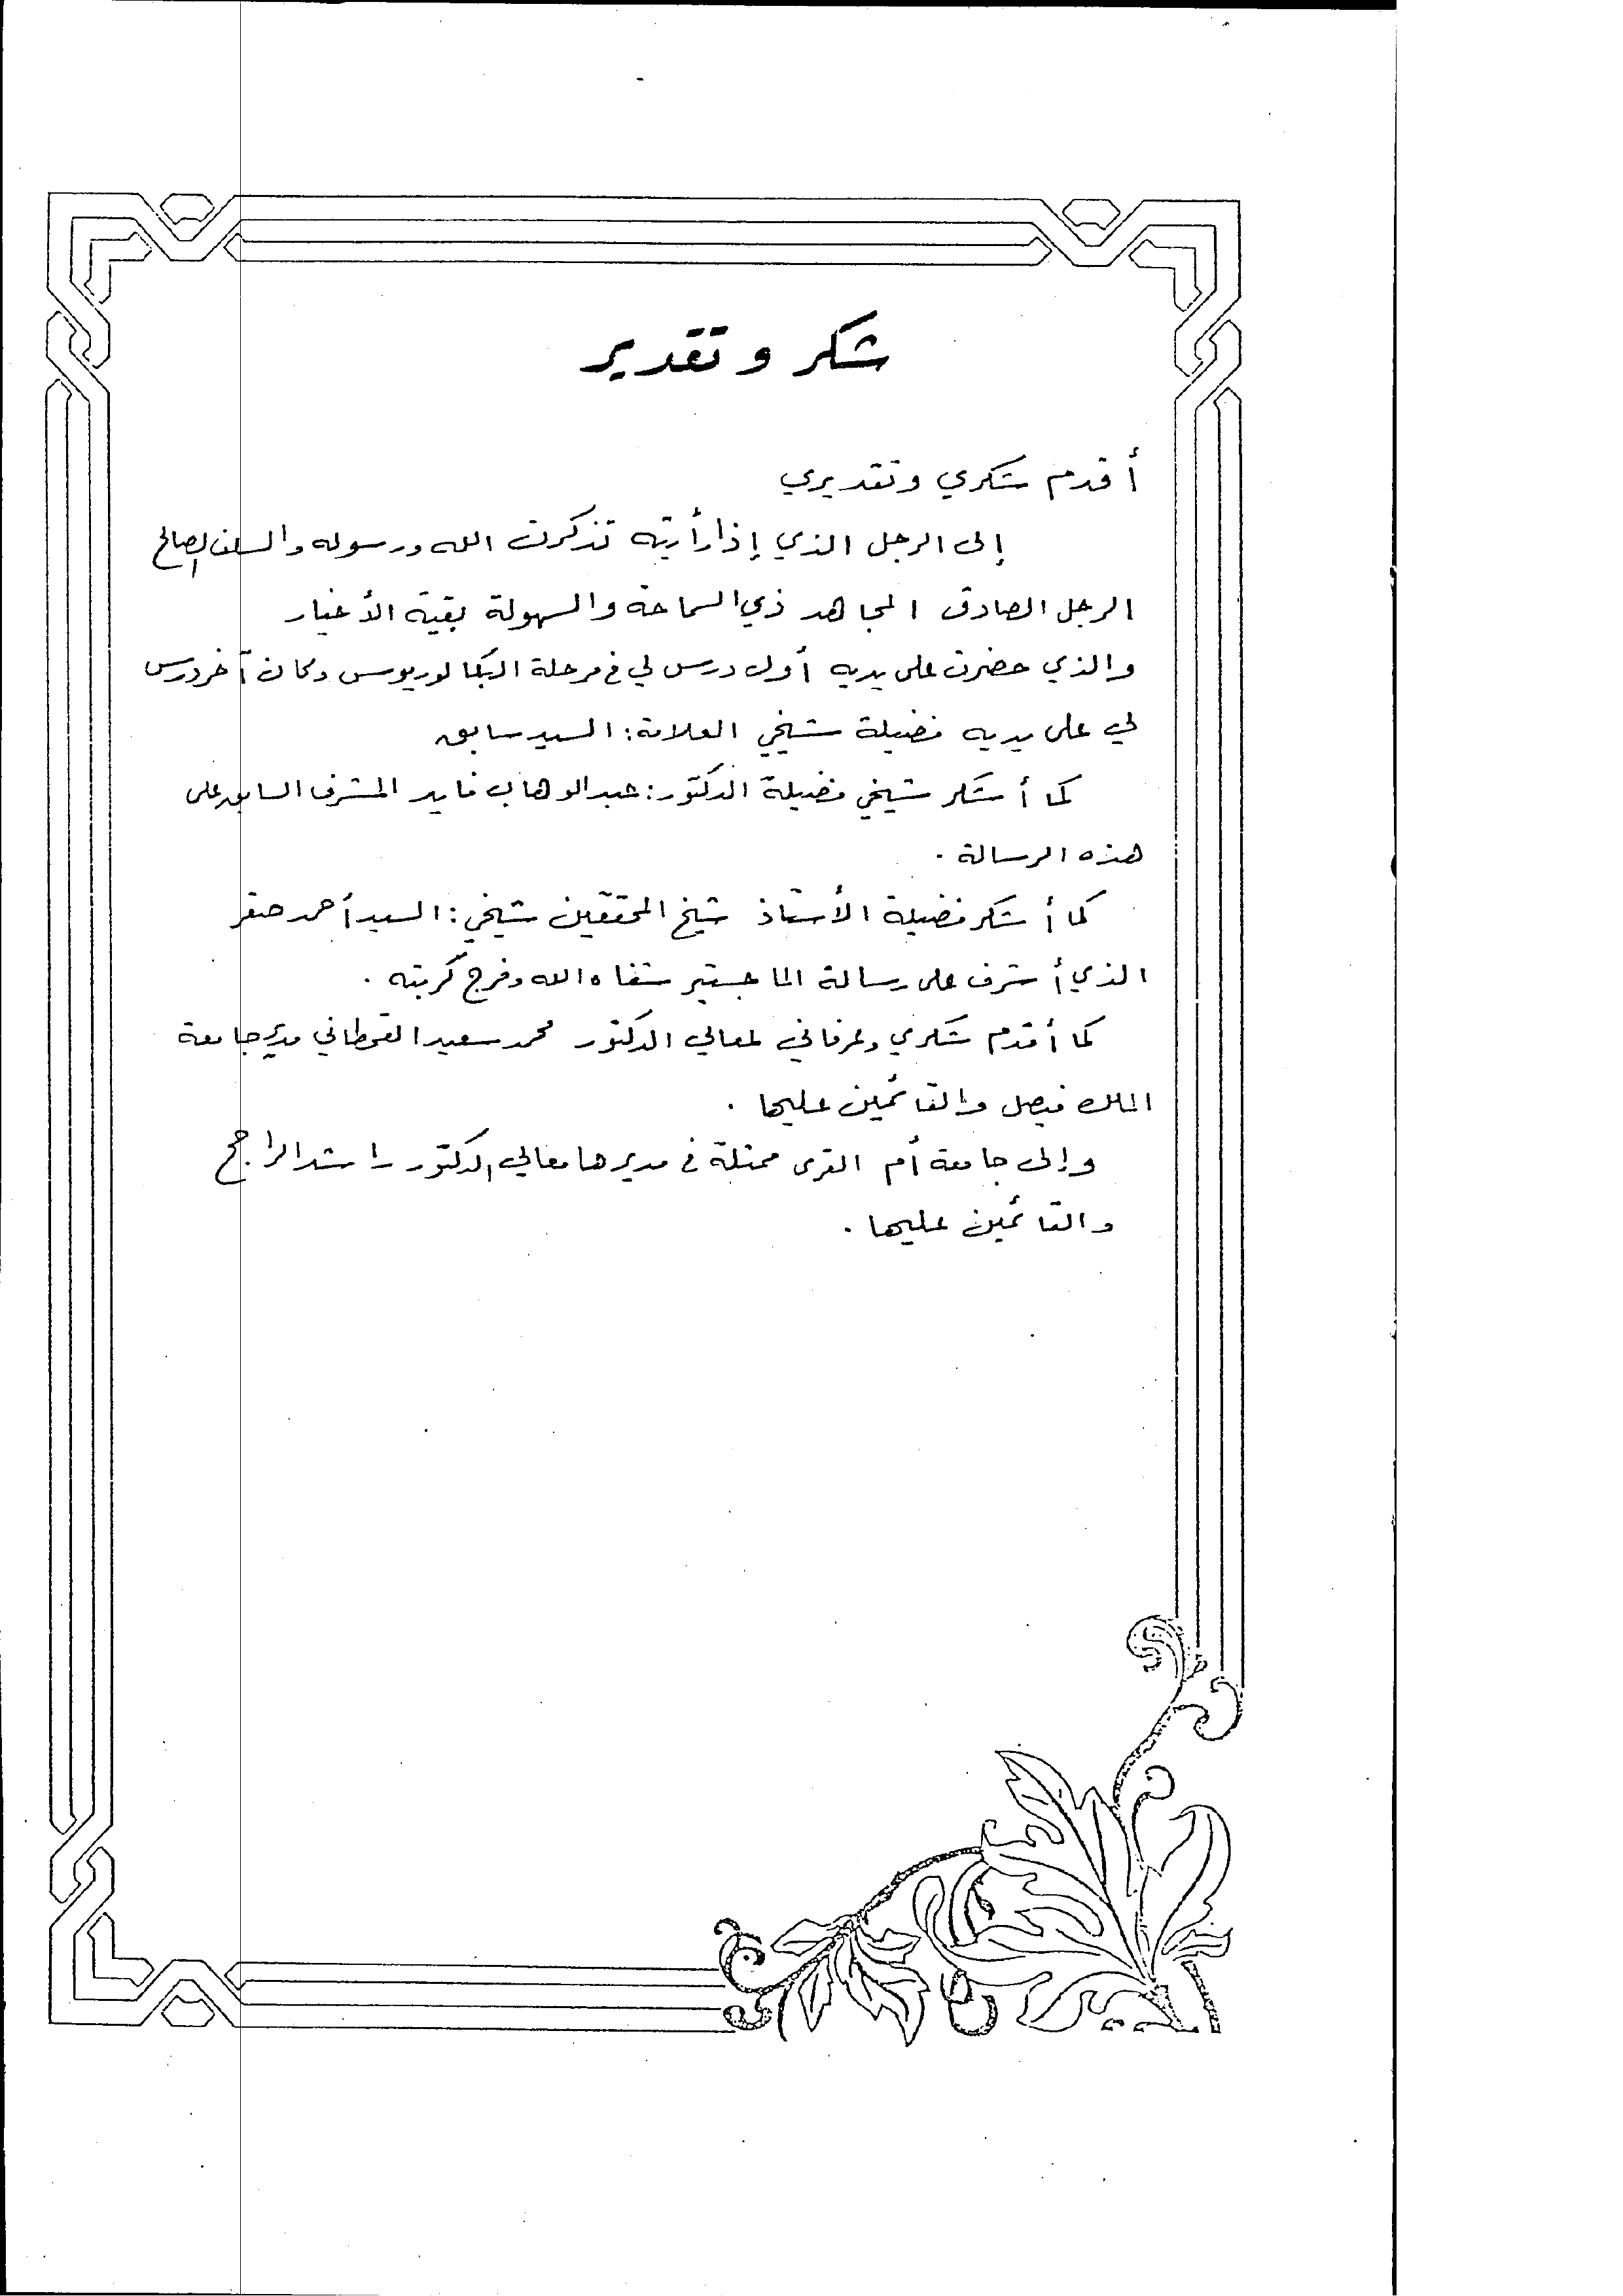 شكر وتقدير
أقدم شكري وتقديري
إلى الرجل الذي إذا رأيته تذكرت الله ورسوله والسلف الصالح
الرجل الصادق المجاهد ذي السماحة والسهولة بقية الأخيار
والذي حضرت على يديه أول درس لي في مرحلة البكالوريوس وكان آخر درس
لي على يديه فضيلة شيخي العلامة: السيد سابق
كما أشكر شيخي فضيلة الدكتور: عبد الوهاب فايد المشرف السابق على
هذه الرسالة .
كما أشكر فضيلة الأستاذ شيخ المحققين شيخي: السيد أحمد صقر
الذي أشرف على رسالة الماجستير شفاه الله وفرج كربته .
كما أقدم شكري وعرفاني لمعالي الدكتور محمد سعيد القحطاني مدير جامعة
الملك فيصل والقائمين عليها .
وإلى جامعة أم القرى ممثلة في مديرها معالي الدكتور راشد الراجح
والقائمين عليها .